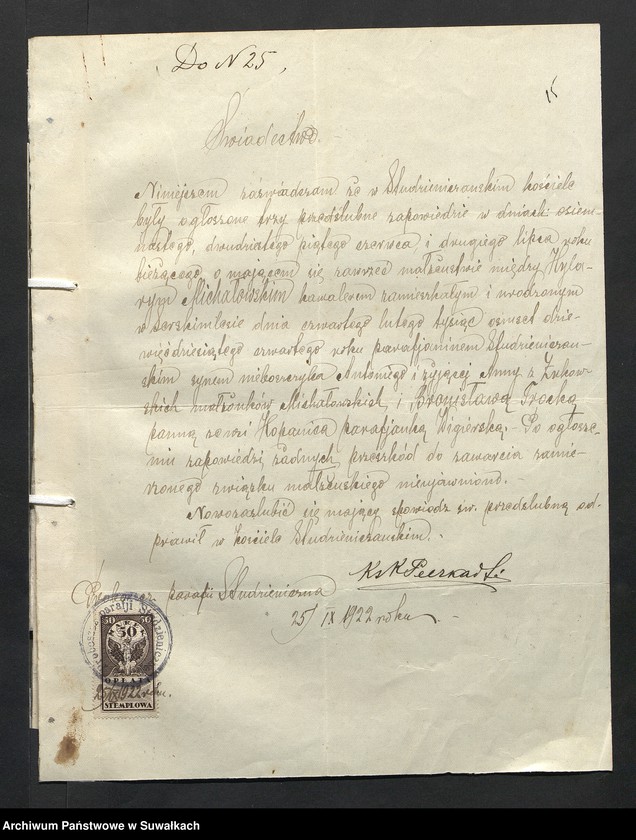 Do N 25,
15
Świadectwo.
Niniejszem zaświadczam że w Studzieniczanskim kościele
były ogłoszone trzy przedślubne zapowiedzie w dniach: osiem-
nastego, dwudziatego piątego czerwca i drugiego lipca roku
bieżącego, o mającem się zawrzeć małżeństwie między Hyla-
ryjm Michałowskim kawalerem zamieszkałym i urodzonym
w Serskimlesie dnia czwartego lutego tysiąc osmset dzie-
więćdziesiątego czwartego roku parafjaninem Studzieniczan-
skim synem nieboszczyka Antoniego i żyjącej Anny z Żukow-
skich małżonków Michałowskich, i Bronisławą Trocką
panną ze wsi Kopanica parafjanką Wigierską. - Po ogłosze-
niu zapowiedzi żadnych przeszkód do zawarcia zamie-
rzonego związku małżeńskiego nieujawniono. -
Nowozaślubić się mający spowiedź św. przedślubną od-
prawił w kościele Studzieniczanskim. -
Ks K Peczkajtis
Proboszcz parafii Studzieniczna
25/IX 1922 roku. -
50 50
50
OPŁATA
STEMPLOWA
25/IX 1922 roku.
Archiwum Państwowe w Suwałkach